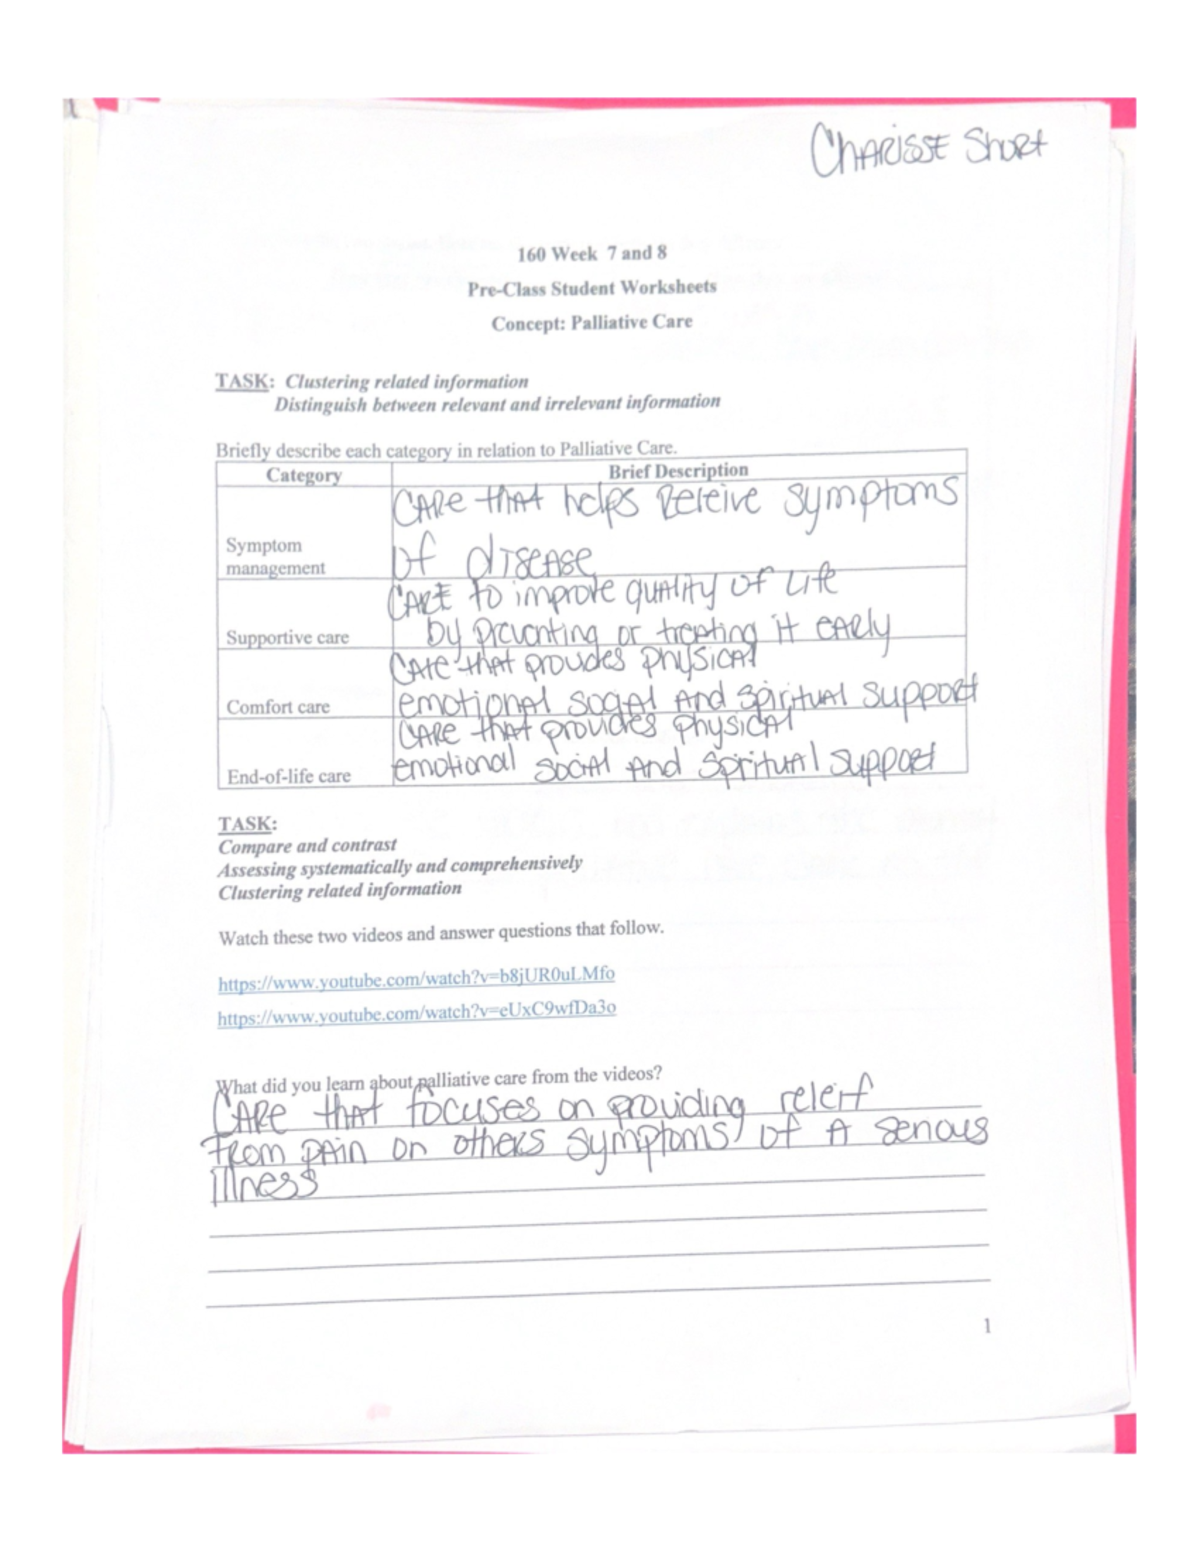 CHARISSE Short
160 Week 7 and 8
Pre-Class Student Worksheets
Concept: Palliative Care
TASK: Clustering related information
Distinguish between relevant and irrelevant information
Briefly describe each category in relation to Palliative Care.
Category Brief Description
Symptom management CARE that helps Receive symptoms
of disease
Supportive care CARE to improve quality of life
by preventing or treating it early
Comfort care Care that provides physical
emotional social and spiritual support
End-of-life care Care that provides physical
emotional social and spiritual support
TASK:
Compare and contrast
Assessing systematically and comprehensively
Clustering related information
Watch these two videos and answer questions that follow.
https://www.youtube.com/watch?v=b8jUR0uLMfo
https://www.youtube.com/watch?v=eUxC9wfDa3o
What did you learn about palliative care from the videos?
CARE that focuses on providing releif
From pain on others symptoms of A serious
illness
1